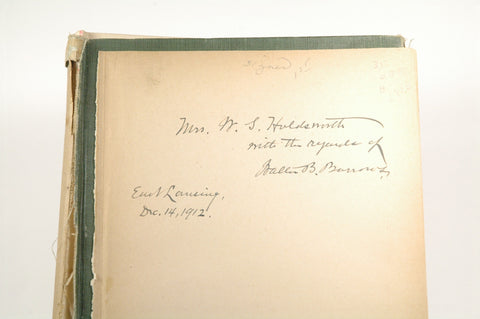 Mrs. W. S. Holdsworth
with the regards of
Walter B. Barrows,
East Lansing,
Dec. 14, 1912.